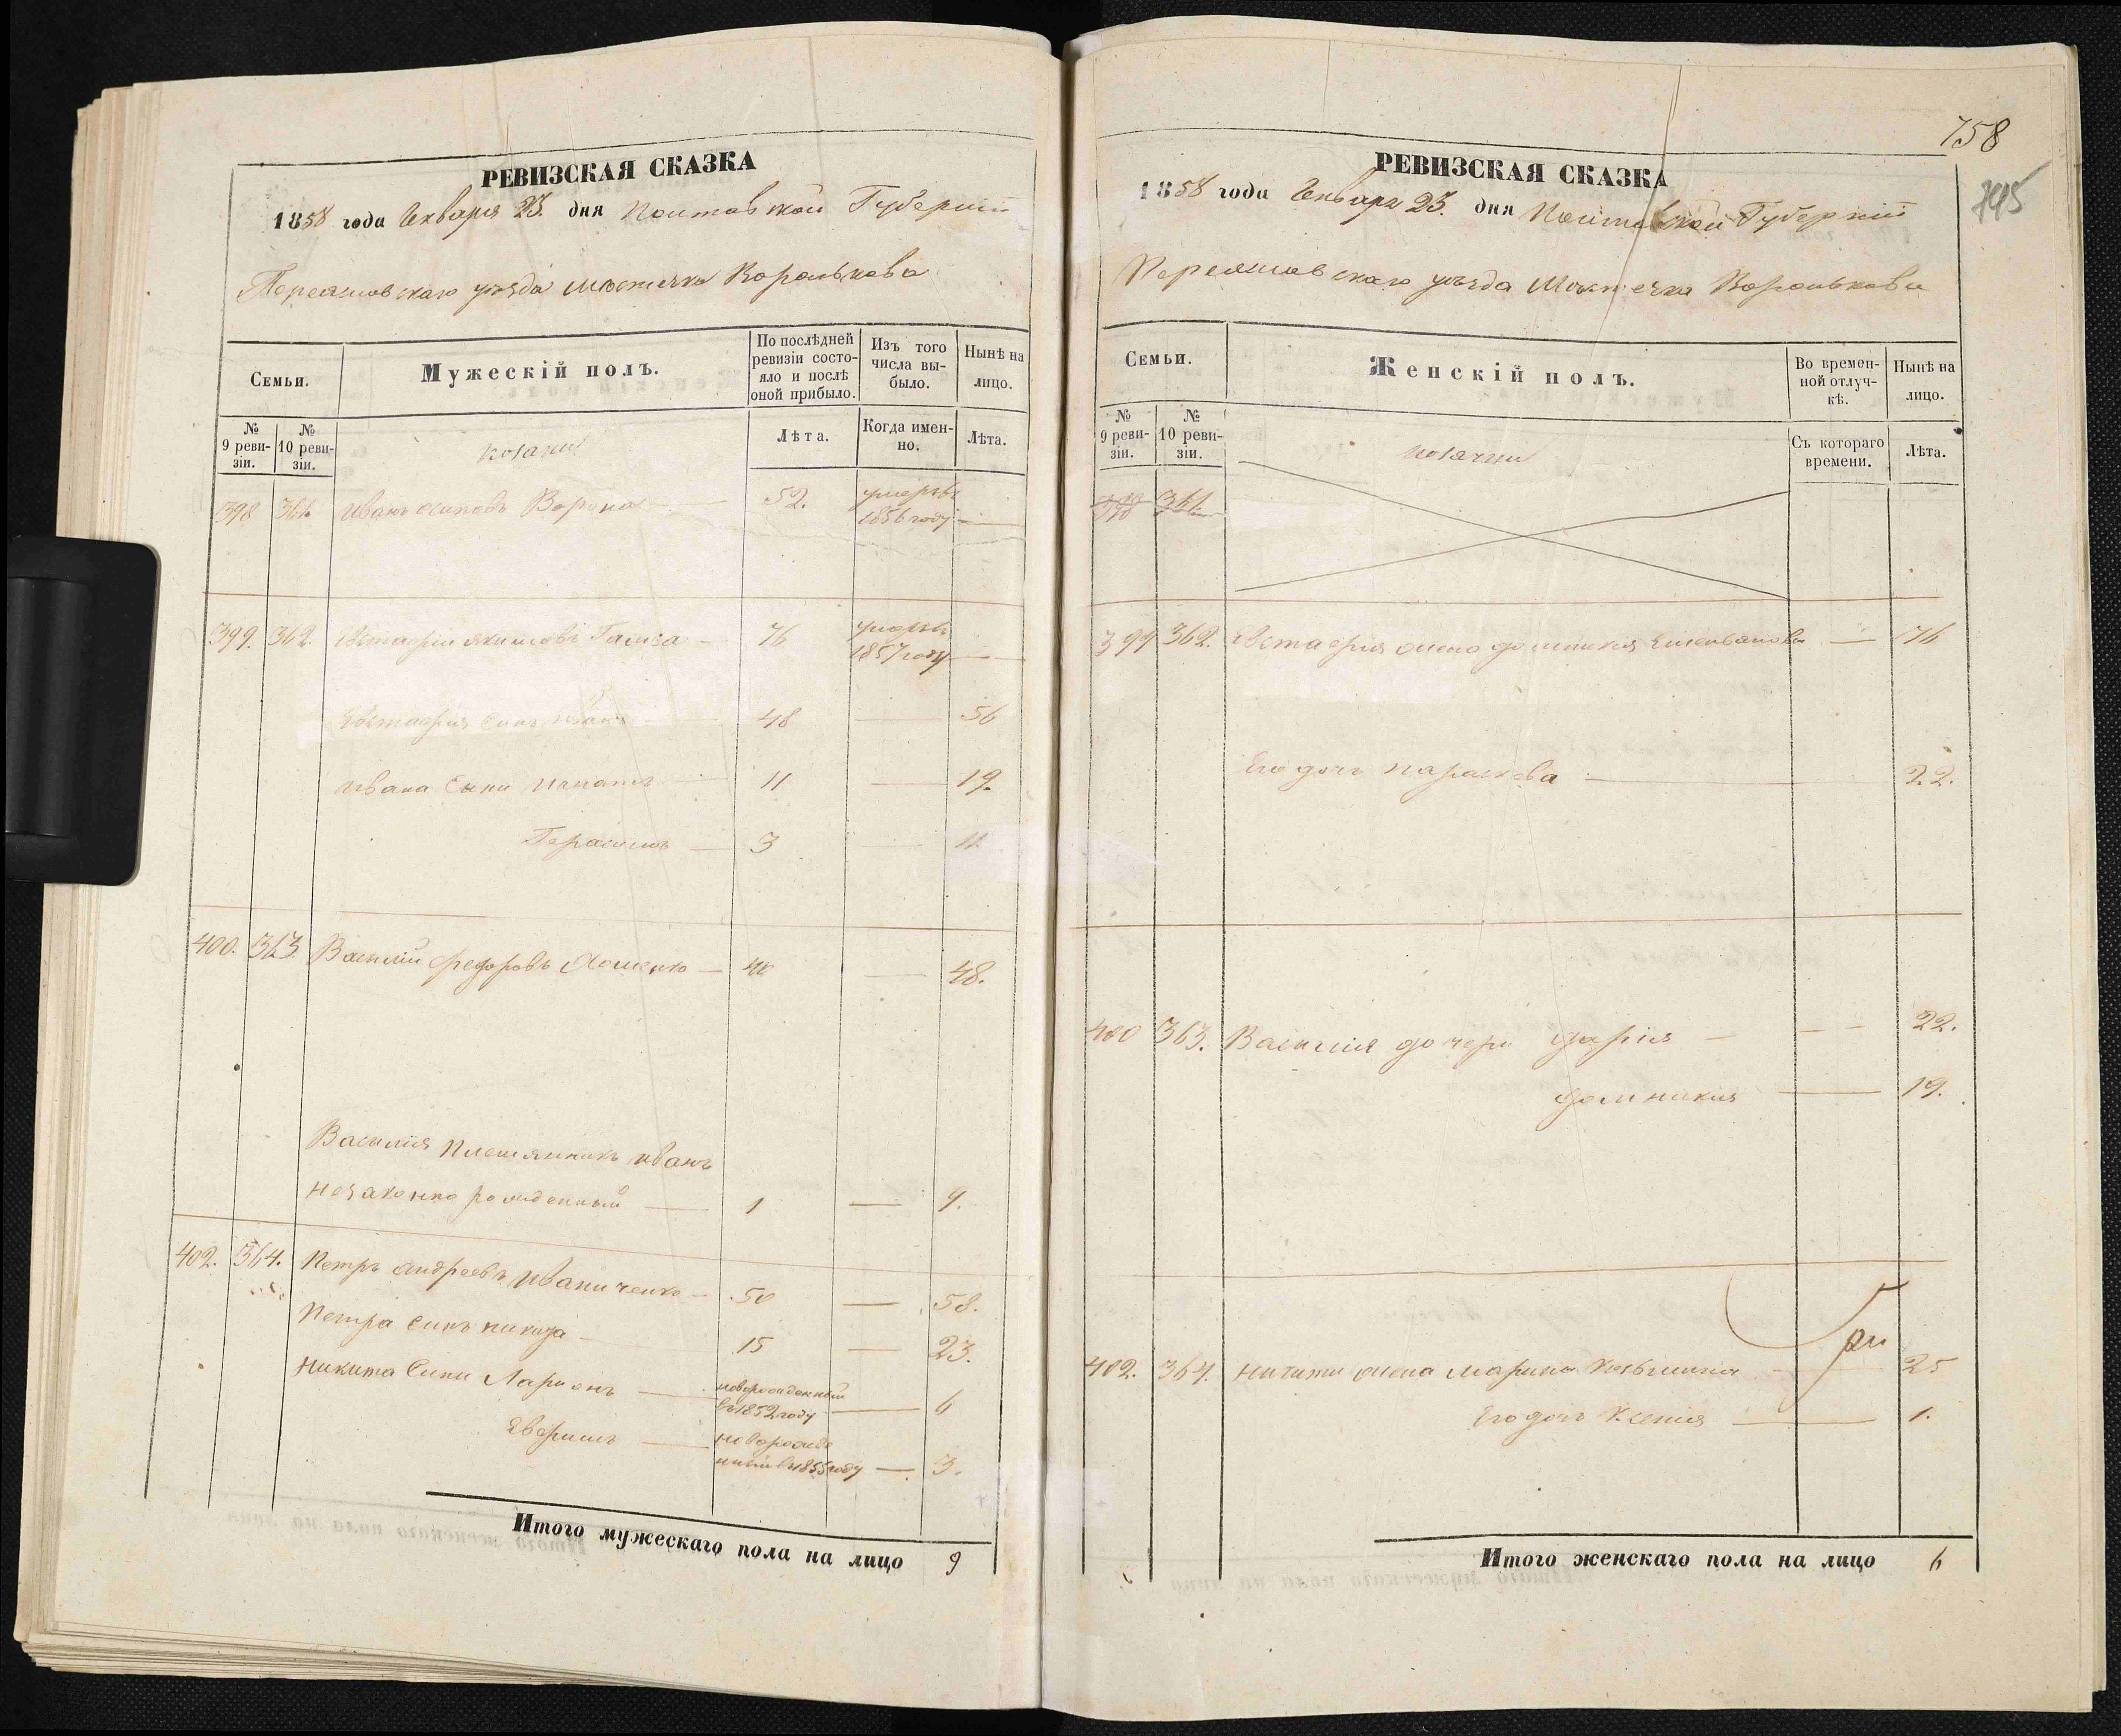 РЕВИЗСКАЯ СКАЗКА
1858 года Генваря 23. дня Полтавской Губернии
Переяславскаго уезда местечка Воронькова
Семьи.
Мужескій полъ.
По послѣдней ревизіи состояло и послѣ оной прибыло.
Изъ того числа выбыло.
Нынѣ на лицо.
№ 9 ревизіи.
№ 10 ревизіи.
козаки
Лѣта.
Когда именно.
Лѣта.
398 361. Иванъ Осиповъ Ворона 52. умеръ въ 1856 году
399. 362. Евстафій Якимовъ 76 умеръ въ 1857 году
Евстафія Сынъ Иванъ 48 — 56
Ивана Сыни Игнатъ 11 — 19.
Герасимъ 3 — 11.
400. 363. Василий Федоровъ 40 — 48.
Василия Племянникъ Иванъ
незаконно рожденный 1 — 9.
402. 364. Петръ Андреевъ Иваниченко 50 — 58.
Петра Синъ Никита 15 — 23.
Никита Сини Ларионъ новорожденный въ 1852 году — 6
Евфимъ новорожденный въ 1855 году — 3.
Итого мужескаго пола на лицо 9
758
745
РЕВИЗСКАЯ СКАЗКА
1858 года Генваря 23. дня Полтавской Губерній
Переяславскаго уезда Местечка Воронькова
Семьи.
Женскій полъ.
Во временной отлучкѣ.
Нынѣ на лицо.
№ 9 ревизіи.
№ 10 ревизіи.
козачки
Съ котораго времени.
Лѣта.
398 361.
399 362. Евстафия жена Домникия — 76
Его дочь Параскева — 22.
400 363. Василия дочери Дария — 22.
Домникия — 19.
402. 364. Никити жена Марина — 25
Его дочь Ксения — 1.
Итого женскаго пола на лицо 6